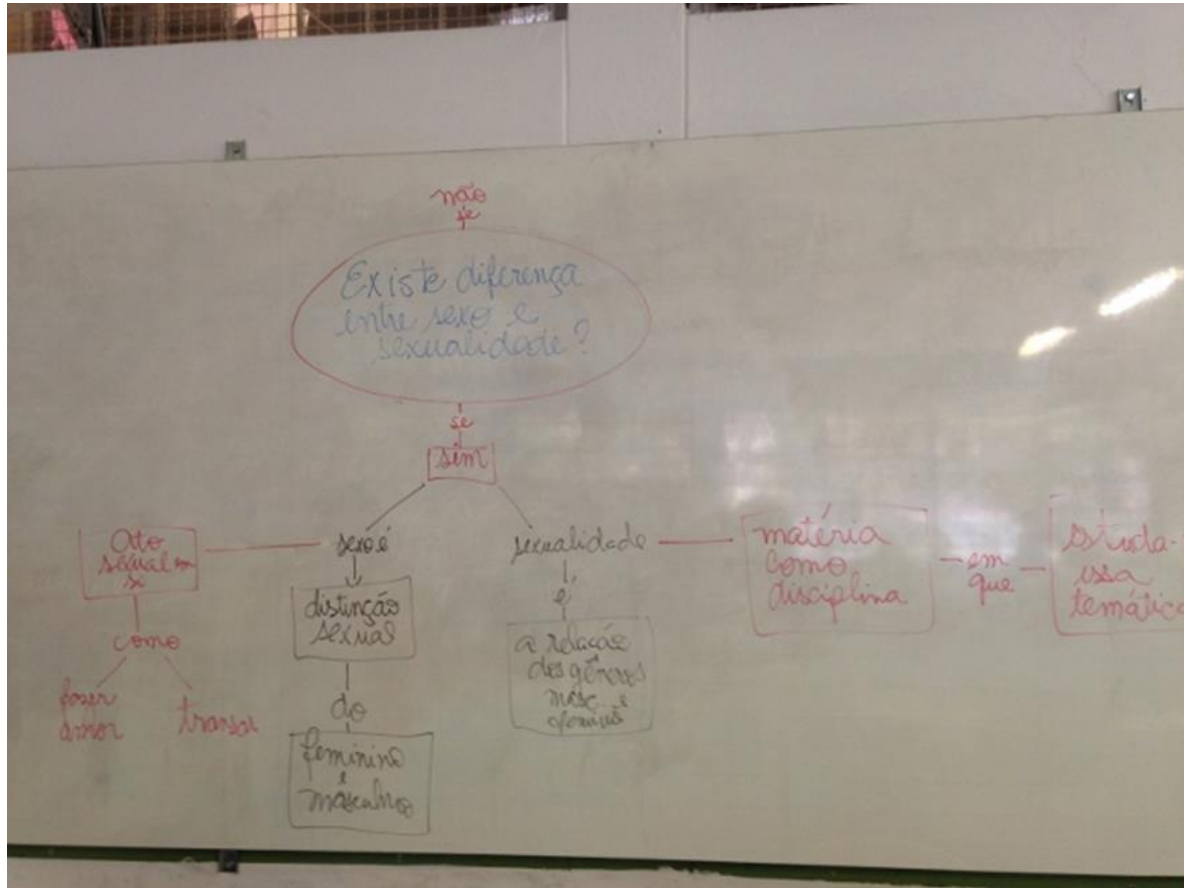 não
se
Existe diferença
entre sexo e
sexualidade?
se
sim
Ato
sexual em
si
como
fazer
amor
transar
sexo é
distinção
sexual
do
feminino
e
masculino
sexualidade
é
a relação
dos gêneros
masc. e
matéria
como
disciplina
em
que
estuda-
essa
temática